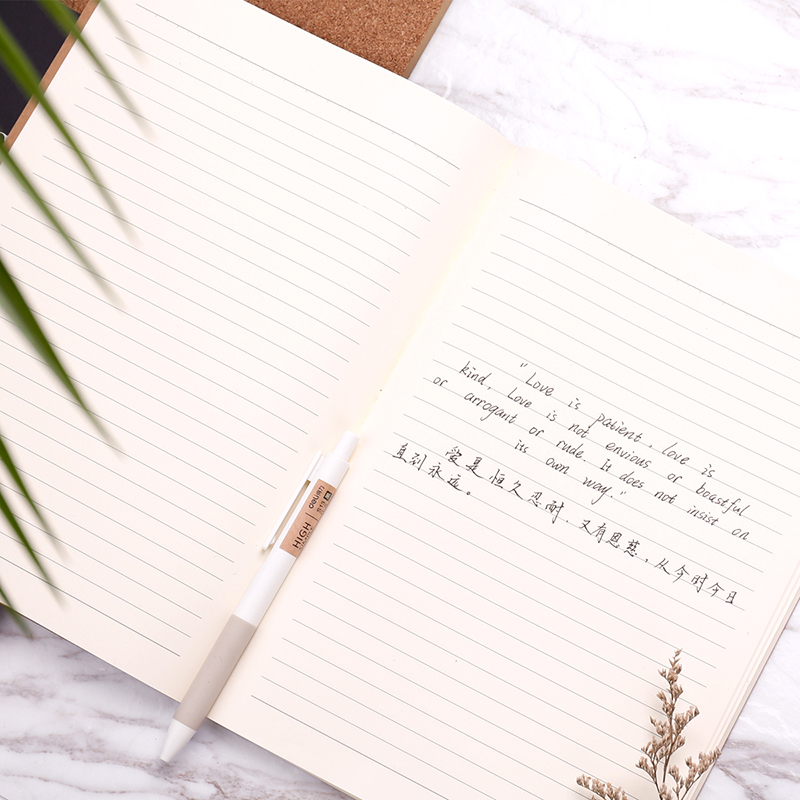 "Love is patient, love is
kind, Love is not envious or boastful
or arrogant or rude. It does not insist on
its own way."
爱是恒久忍耐，又有恩慈，从今时今日
直到永远。
deli得力
HIGH